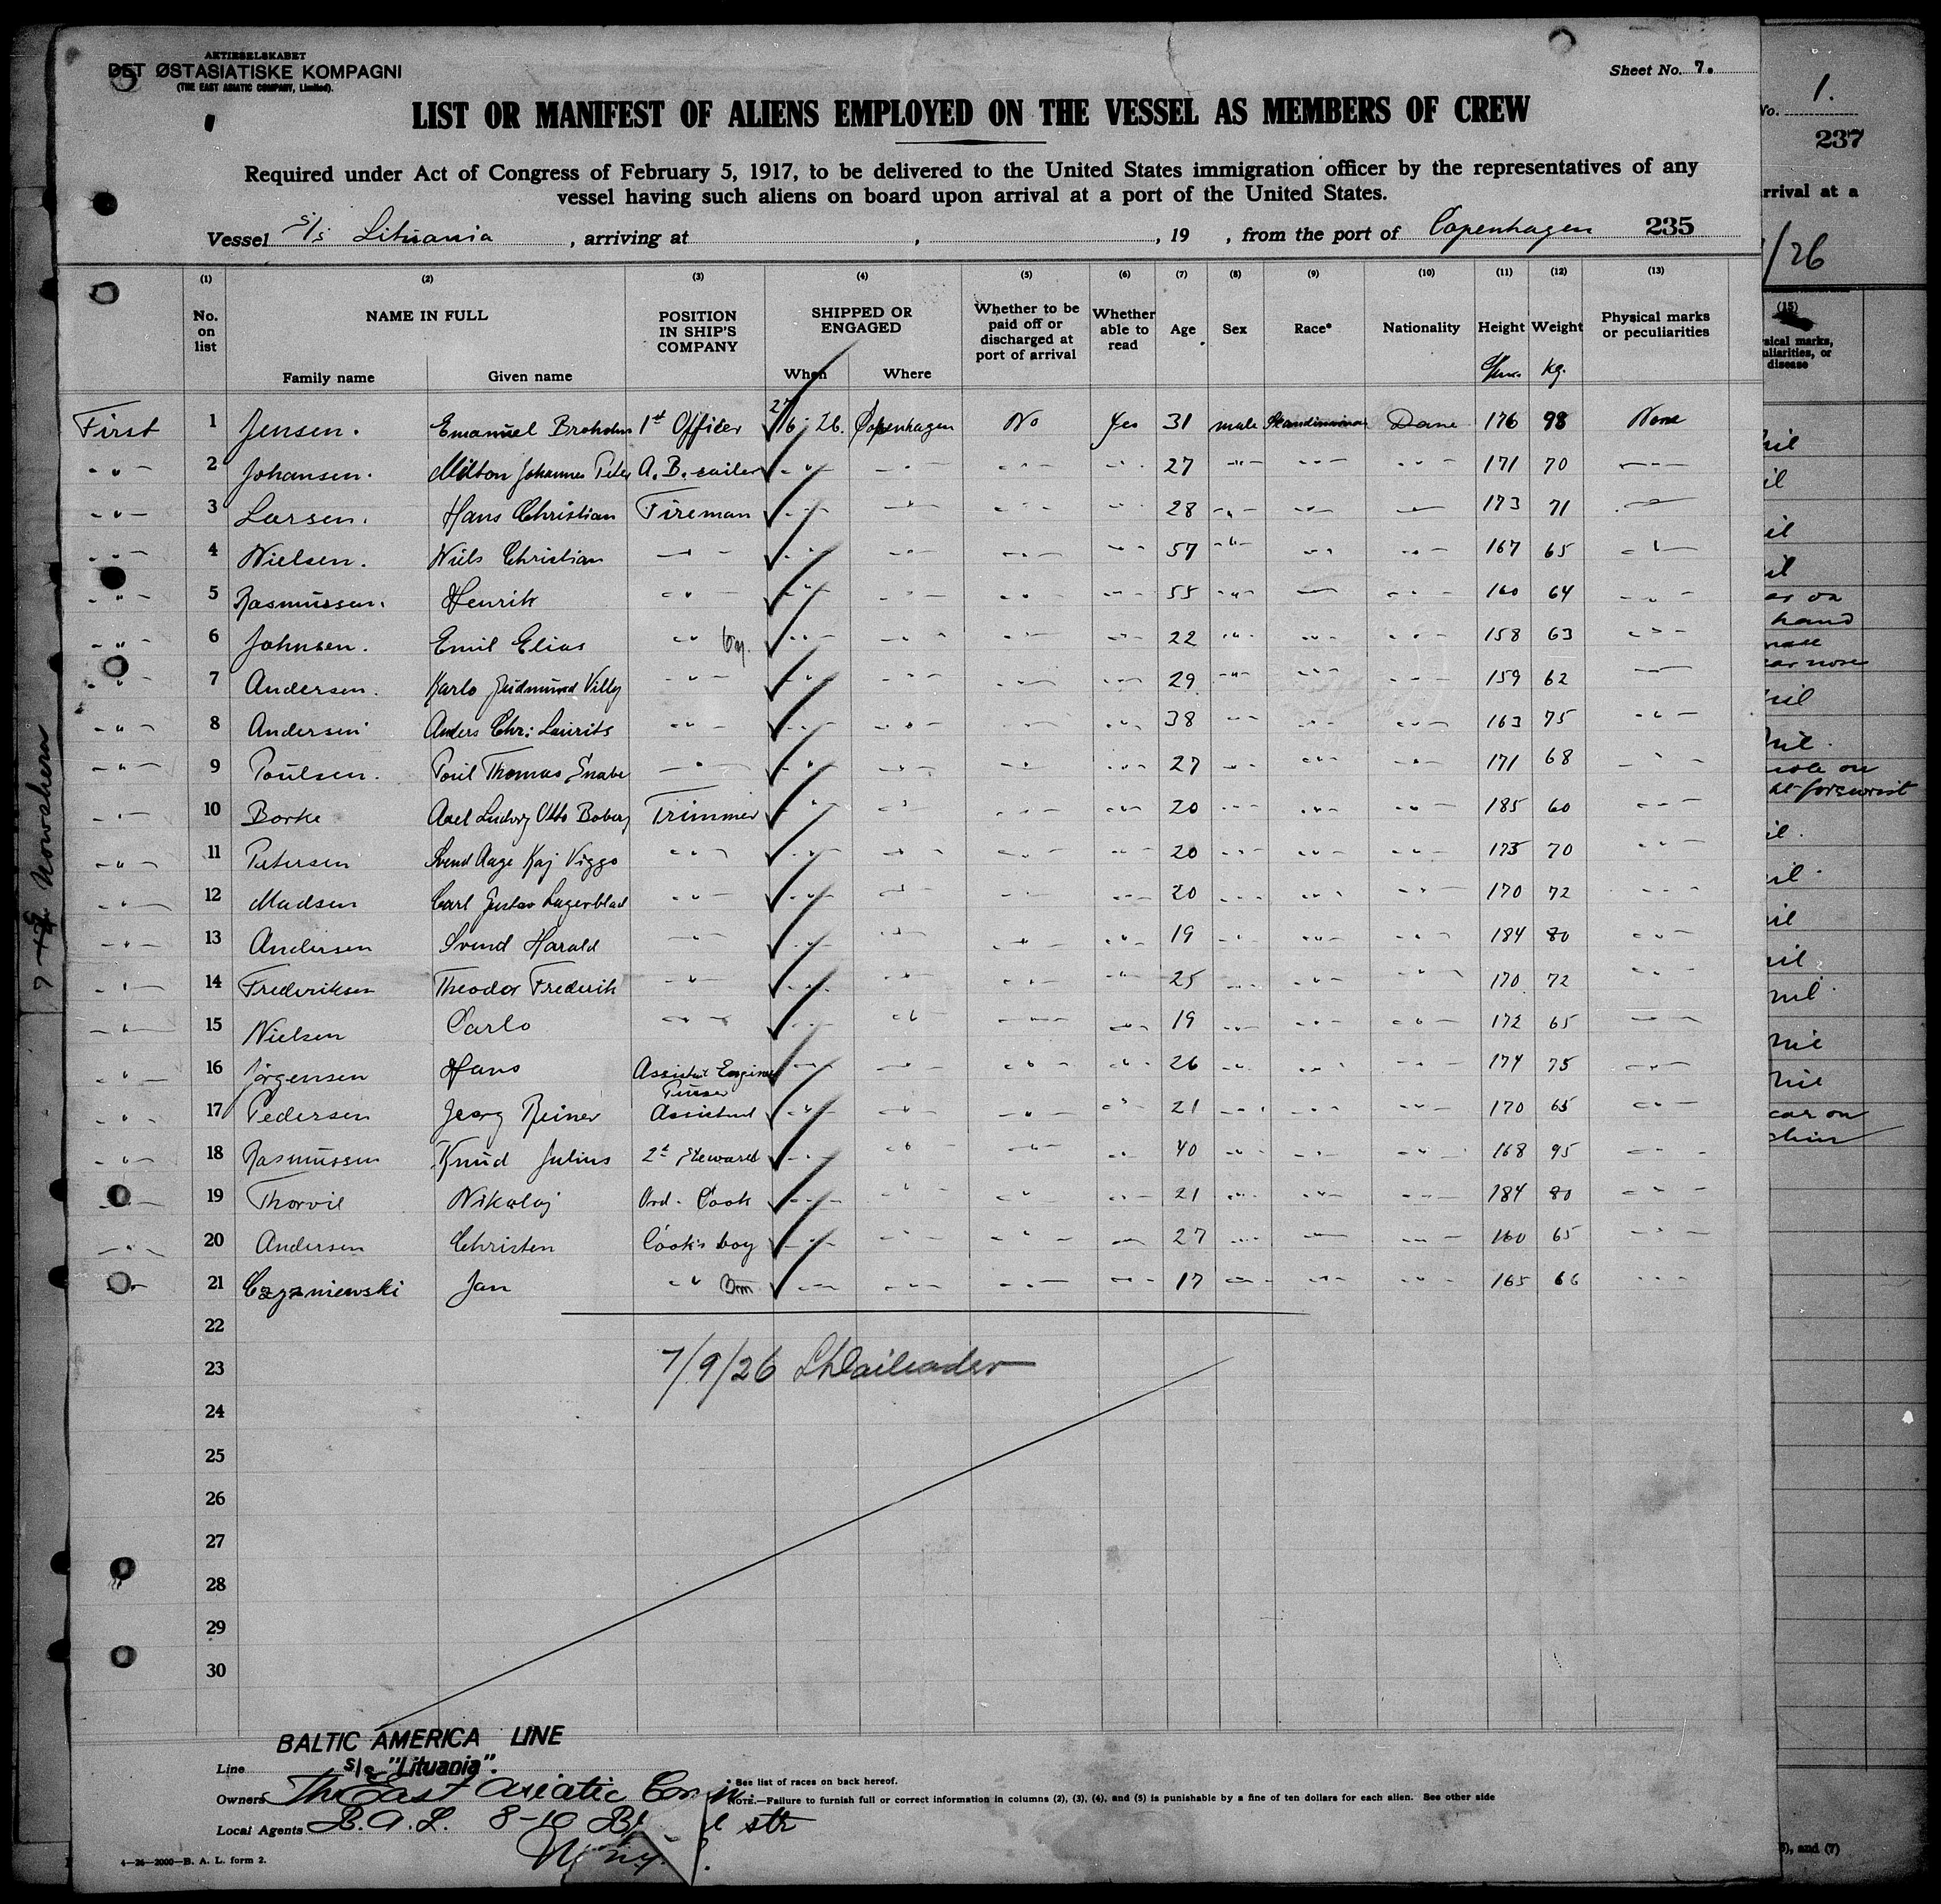 AKTIESELSKABET
DET ØSTASIATISKE KOMPAGNI
(THE EAST ASIATIC COMPANY, Limited).
Sheet No. 7.
LIST OR MANIFEST OF ALIENS EMPLOYED ON THE VESSEL AS MEMBERS OF CREW
Required under Act of Congress of February 5, 1917, to be delivered to the United States immigration officer by the representatives of any
vessel having such aliens on board upon arrival at a port of the United States.
Vessel S/s Lituania, arriving at , , 19 , from the port of Copenhagen 235
(1) (2) (3) (4) (5) (6) (7) (8) (9) (10) (11) (12) (13)
No. on list NAME IN FULL POSITION IN SHIP'S COMPANY SHIPPED OR ENGAGED Whether to be paid off or discharged at port of arrival Whether able to read Age Sex Race* Nationality Height Weight Physical marks or peculiarities
Family name Given name When Where Kg.
First 1 Jensen. Emanuel 1st Officer 27/6-26. Copenhagen No Yes 31 male Skandinavian Dane 176 98 None
-"- 2 Johansen. Milton Johannes Peter A.B. sailor -"- -"- -"- -"- 27 -"- -"- -"- 171 70 -"-
-"- 3 Larsen. Hans Christian Fireman -"- -"- -"- -"- 28 -"- -"- -"- 173 71 -"-
-"- 4 Nielsen. Niels Christian -"- -"- -"- -"- -"- 57 -"- -"- -"- 167 65 -"-
-"- 5 Rasmussen. Henrik -"- -"- -"- -"- -"- 55 -"- -"- -"- 160 64 -"-
-"- 6 Johnsen. Emil Elias -"- -"- -"- -"- -"- 22 -"- -"- -"- 158 63 -"-
-"- 7 Andersen. Karlo Gudmund Villy -"- -"- -"- -"- -"- 29 -"- -"- -"- 159 62 -"-
-"- 8 Andersen Anders Chr: Laurits -"- -"- -"- -"- -"- 38 -"- -"- -"- 163 75 -"-
-"- 9 Poulsen. Poul Thomas Snabe -"- -"- -"- -"- -"- 27 -"- -"- -"- 171 68 -"-
-"- 10 Borke Axel Ludvig Otto Boberg Trimmer -"- -"- -"- -"- 20 -"- -"- -"- 185 60 -"-
-"- 11 Petersen Svend Aage Kaj Viggo -"- -"- -"- -"- -"- 20 -"- -"- -"- 175 70 -"-
-"- 12 Madsen Carl Gustav Lagerblad -"- -"- -"- -"- -"- 20 -"- -"- -"- 170 72 -"-
-"- 13 Andersen Svend Harald -"- -"- -"- -"- -"- 19 -"- -"- -"- 184 80 -"-
-"- 14 Frederiksen Theodor Frederik -"- -"- -"- -"- -"- 25 -"- -"- -"- 170 72 -"-
-"- 15 Nielsen Carlo -"- -"- -"- -"- -"- 19 -"- -"- -"- 172 65 -"-
-"- 16 Jörgensen Hans Assistent Engineer -"- -"- -"- -"- 26 -"- -"- -"- 174 75 -"-
-"- 17 Pedersen Georg Reiner Purser Assistent -"- -"- -"- -"- 21 -"- -"- -"- 170 65 -"-
-"- 18 Rasmussen Knud Julius 2d Steward -"- -"- -"- -"- 40 -"- -"- -"- 168 95 -"-
-"- 19 Thorvil Nikolaj Ord. Cook -"- -"- -"- -"- 21 -"- -"- -"- 184 80 -"-
-"- 20 Andersen Christen Cook's boy -"- -"- -"- -"- 27 -"- -"- -"- 160 65 -"-
-"- 21 Czyzniewski Jan -"- -"- -"- -"- -"- 17 -"- -"- -"- 165 66 -"-
22
23 7/9/26
24
25
26
27
28
29
30
BALTIC AMERICA LINE
Line S/s "Lituania".
* See list of races on back hereof.
Owners The East Asiatic
NOTE.—Failure to furnish full or correct information in columns (2), (3), (4), and (5) is punishable by a fine of ten dollars for each alien. See other side
Local Agents B.A.L. 8-10 str
N.Y.
4—26—2000—B. A. L. form 2.
No. 1.
237
rrival at a
/26
(15)
sical marks,
uliarities, or
disease
hand
nose
nil
scar on
chin
5), and (7)